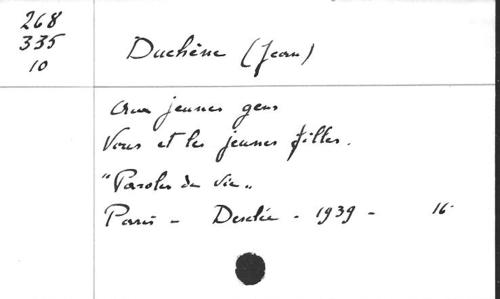 268
335
10
Duchêne (Jean)
Aux jeunes gens
Vous et les jeunes filles.
"Paroles de vie"
Paris - Desclée - 1939 - 16